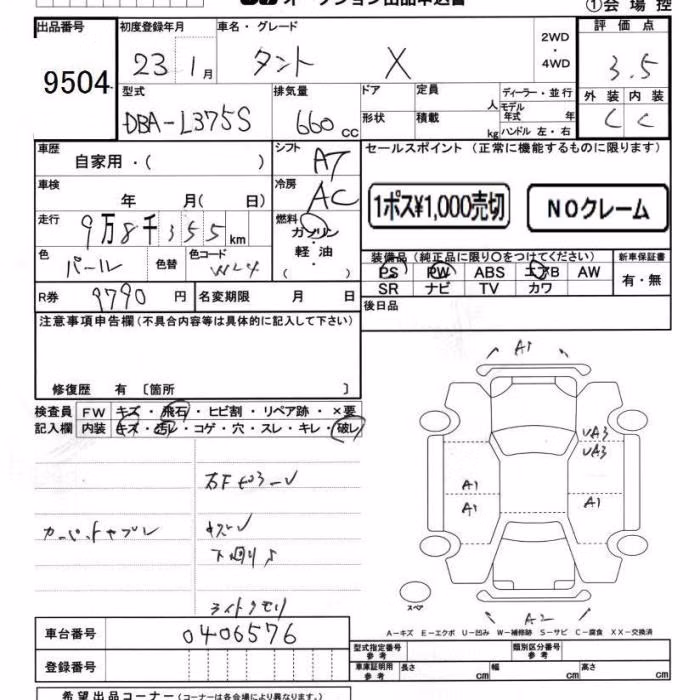 ①会 場 控
出品番号
9504
初度登録年月
23 1月
車名・グレード
タント X
2WD
・
4WD
評 価 点
3.5
型式
DBA-L375S
排気量
660 cc
ドア
定員
人
形状
積載
kg
ディーラー・並行
モデル年式 年
ハンドル 左・右
外 装 内 装
C C
車歴
自家用・( )
シフト
AT
セールスポイント (正常に機能するものに限ります)
車検
年 月( 日)
冷房
AC
1ポス¥1,000売切
NOクレーム
走行
9万8千355km
燃料
ガソリン
・
軽油
色
パール
色替
色コード
W24
装備品(純正品に限り○をつけてください)
新車保証書
PS PW ABS エアB AW
有・無
SR ナビ TV カワ
R券
9790 円
名変期限 月 日
後日品
注意事項申告欄(不具合内容等は具体的に記入して下さい)
修復歴 有 〔箇所 〕
A1
検査員
記入欄
FW キズ・飛石・ヒビ割・リペア跡・×要
内装 キズ・汚レ・コゲ・穴・スレ・キレ・破レ
UA3
UA3
A1
A1
A1
カーペットヤブレ
下廻りサ
ライトクモリ
スペア
A2
A-キズ E-エクボ U-凹み W-補修跡 S-サビ C-腐食 XX-交換済
車台番号
0406576
型式指定番号
参考
類別区分番号
参考
登録番号
車庫証明用
参考
長さ cm
幅 cm
高さ cm
希望出品コーナー(コーナーは各会場により異なります。)